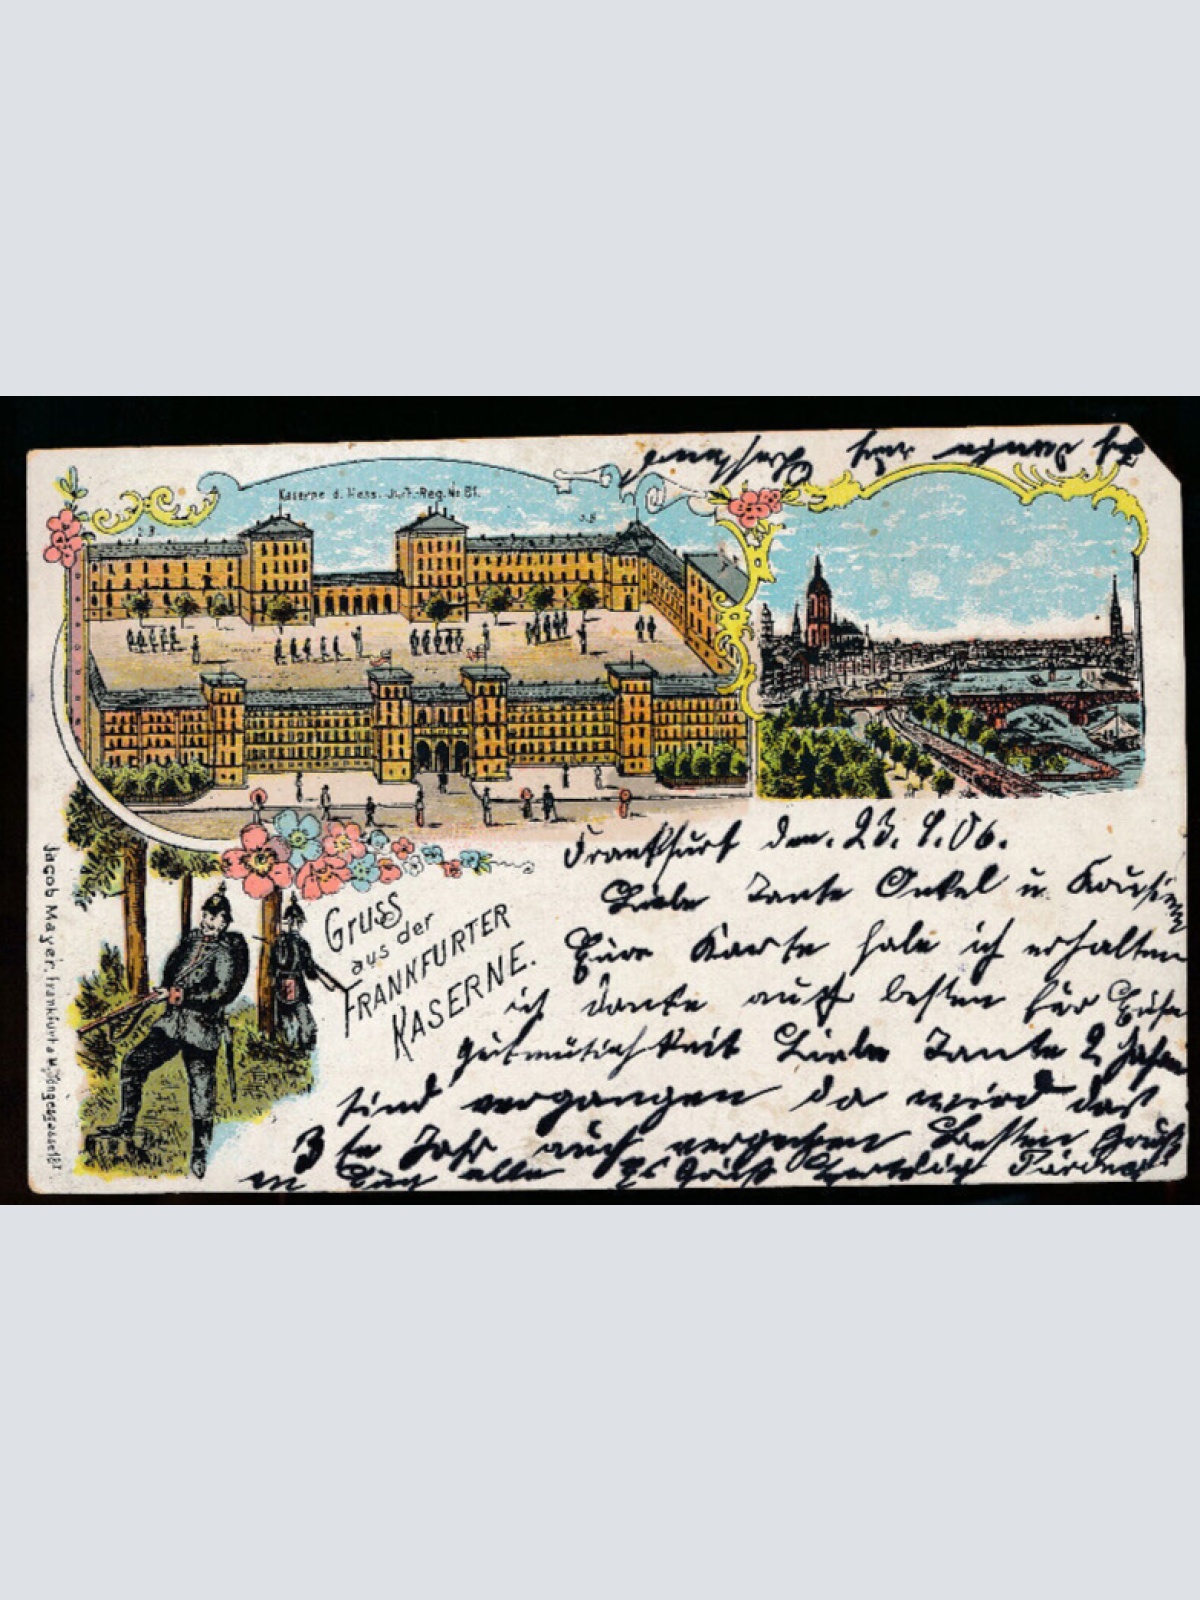 Kaserne d. Hess. Inft.-Reg. No 81.
Gruss
aus der
FRANKFURTER
KASERNE.
Jacob Mayer, Frankfurt a/M
Frankfurt den. 23. 9. 06.
Liebe Tante Onkel u. Kousin
Eure Karte habe ich erhalten
ich danke auch besten für Eure
gutmütichkeit Liebe Tante 2 Jahre
sind vergangen da wird das
3 te Jahr auch vergehen Besten Gruß
an Euch alle